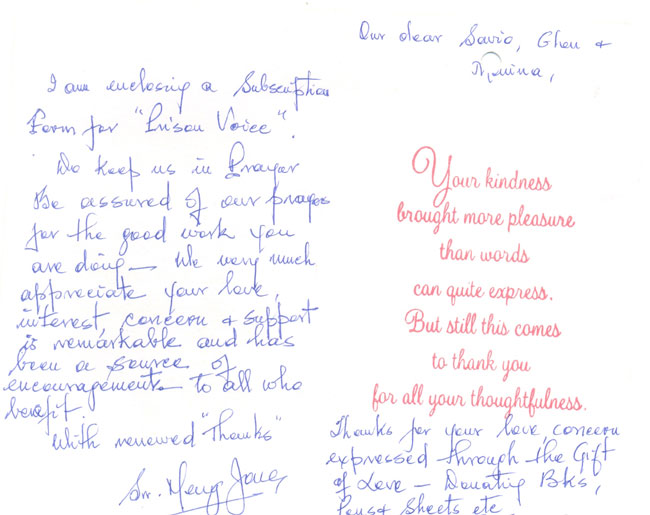 Our dear Savio, Glen &
I am enclosing a Subscription
Form for "Prison Voice".
Do keep us in Prayer
Be assured of our prayers
for the good work you
are doing — We very much
appreciate your love,
interest, concern & support
is remarkable and has
been a source of
encouragement to all who
benefit.
With renewed "Thanks"
Sr.
Your kindness
brought more pleasure
than words
can quite express.
But still this comes
to thank you
for all your thoughtfulness.
Thanks for your love, concern
expressed through the Gift
of Love — Donating Bks,
Pens & Sheets etc